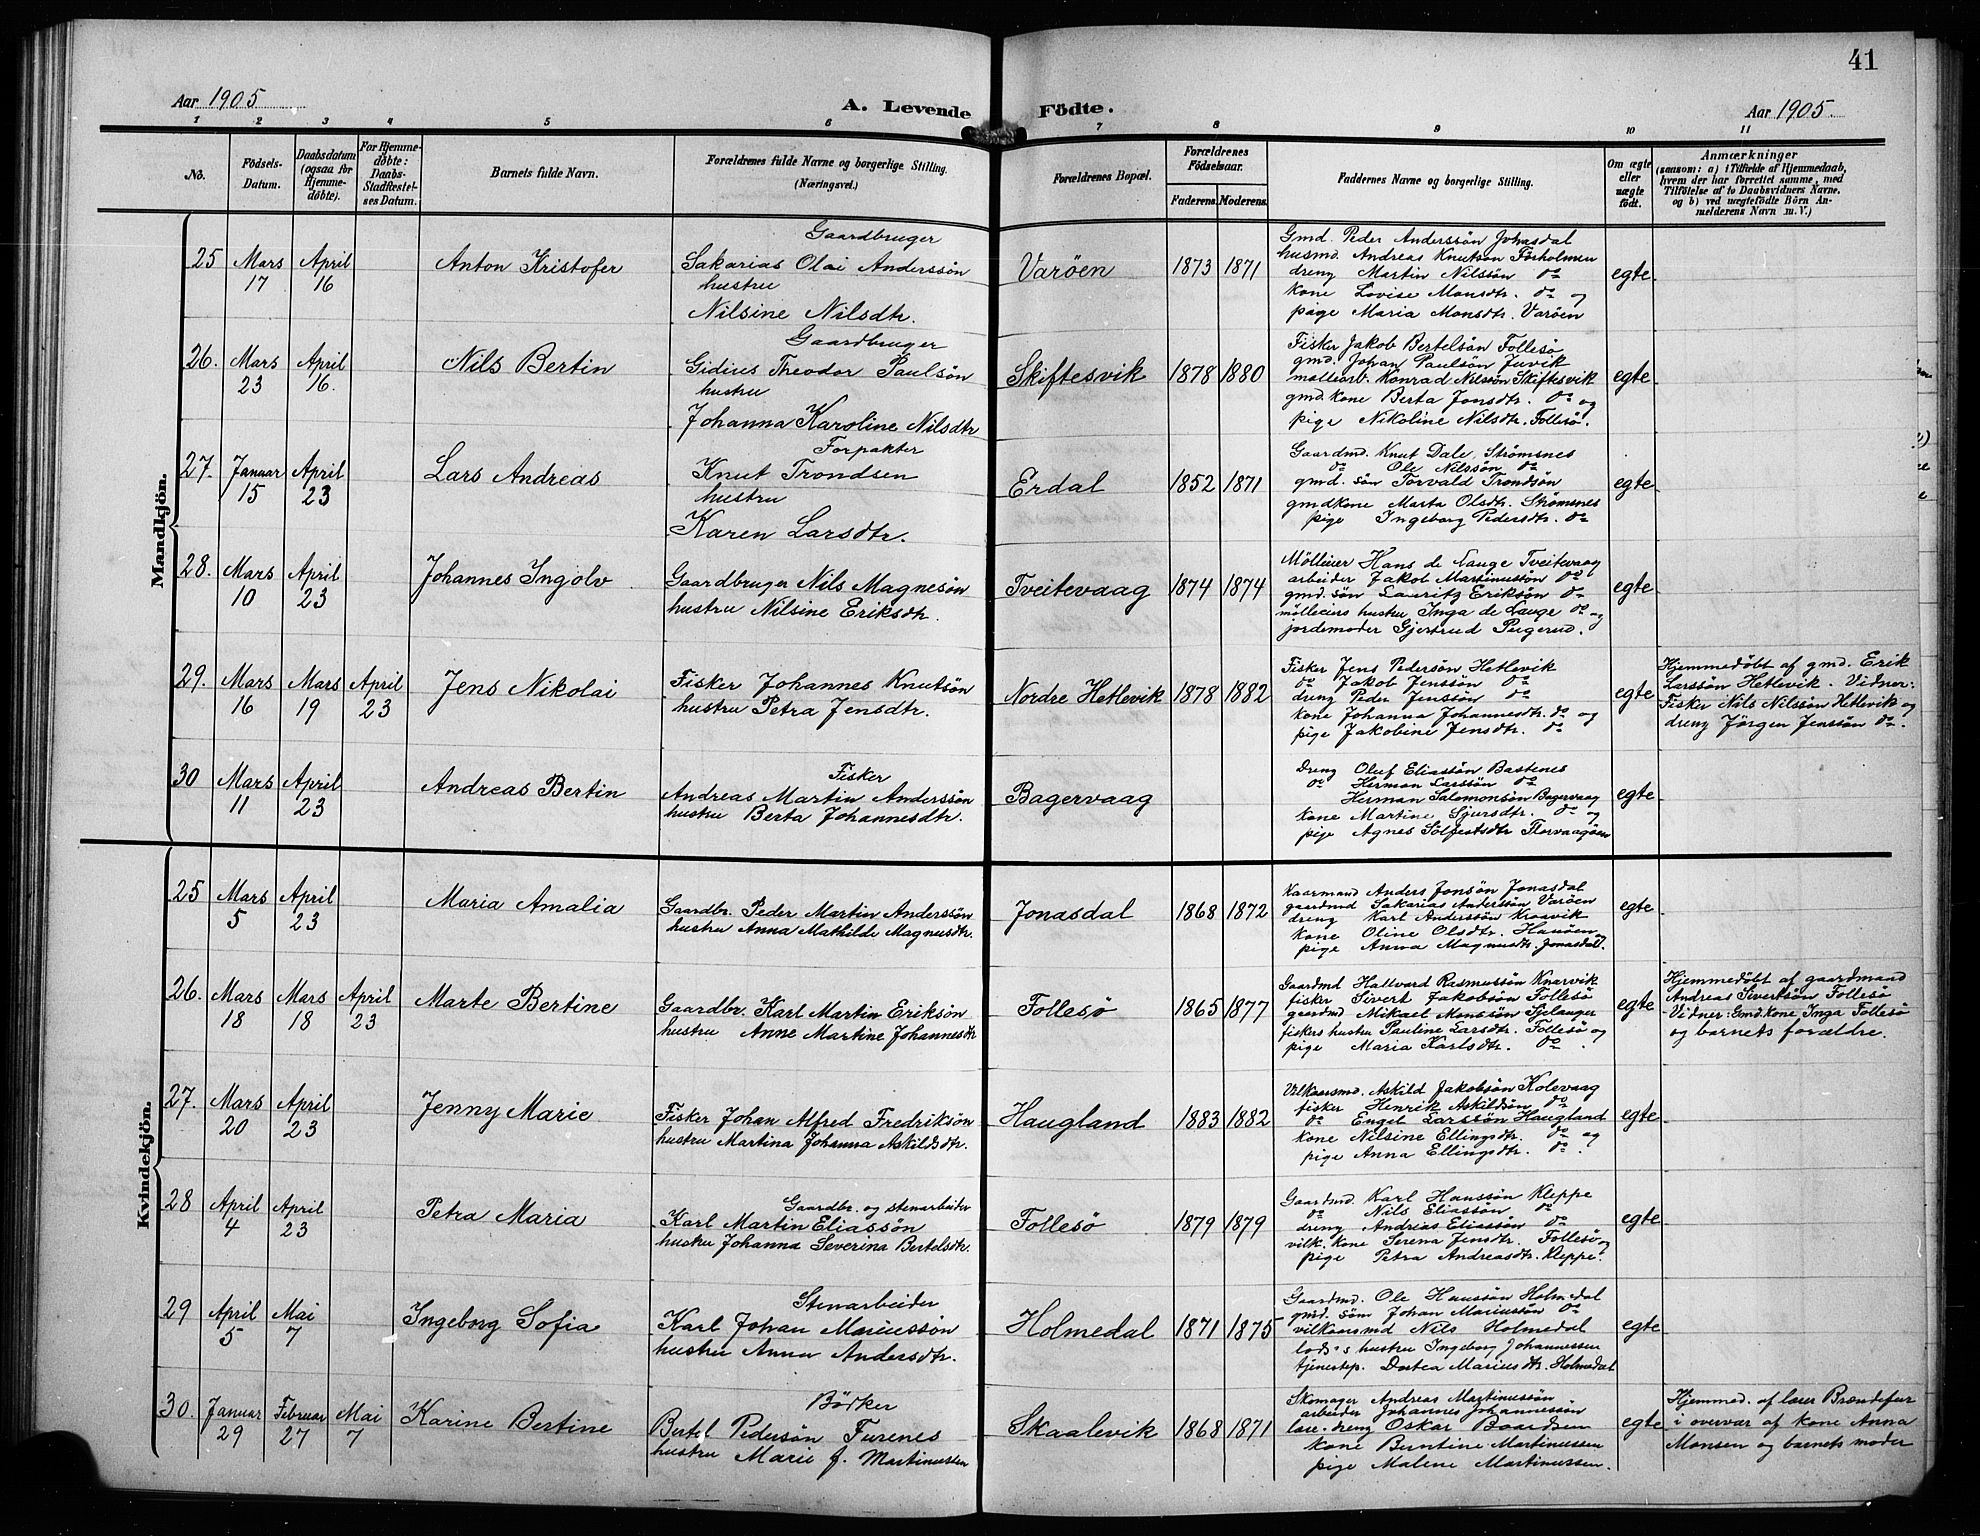 41
Aar 1905
A. Levende Födte.
Aar 1905.
1 2 3 4 5 6 7 8 9 10 11
No.
Födsels-
Datum.
Daabsdatum
(ogsaa for
Hjemme-
döbte).
For Hjemme-
döbte:
Daabs-
Stadfæstel-
ses Datum.
Barnets fulde Navn.
Forældrenes fulde Navne og borgerlige Stilling.
(Næringsvei.)
Forældrenes Bopæl.
Forældrenes
Födselsaar.
Faderens. Moderens.
Faddernes Navne og borgerlige Stilling.
Om ægte
eller
uægte
födt.
Anmærkninger
(saasom: a) i Tilfælde af Hjemmedaab,
hvem der har forrettet samme, med
Tilföielse af to Daabsvidners Navne,
og b) ved uægtefödte Börn An-
melderens Navn m. V.)
Mandkjön.
25 Mars 17 April 16
Anton Kristofer
Gaardbruger
Sakarias Olai Anderssön
hustru
Nilsine Nilsdtr.
Varöen 1873 1871
Gmd. Peder Anderssön Jonasdal
husmd. Andreas Knutsön Forholmen
dreng Martin Nilssön do
kone Lovise Monsdtr. do og
pige Maria Monsdtr. Varöen
egte
26. Mars 23 April 16.
Nils Bertin
Gaardbruger
Gidius Theodor Paulsön
hustru
Johanna Karoline Nilsdtr
Skiftesvik 1878 1880
Fisker Jakob Bertelsön Follesö
gmd. Johan Paulsön Juvik
möllearb. Konrad Nilssön Skiftesvik
gmd.kone Berta Jonsdtr. do og
pige Nikoline Nilsdtr. Follesö.
egte
27. Januar 15 April 23
Lars Andreas
Forpakter
Knut Trondsen
hustru
Karen Larsdtr.
Erdal 1852 1871
Gaardmd. Knut Dale, Strömsnes
do Ole Nilssön do
gmd. sön Torvald Trondsön
gmdkone Marta Olsdtr. Strömsnes
pige Ingeborg Pedersdtr. do
egte
28. Mars 10 April 23
Johannes Ingolv
Gaardbruger Nils Magnesön
hustru Nilsine Eriksdtr.
Tveitevaag 1874 1874
Möllier Hans de Lange Tveitevaag
arbeider Jakob Martinussön do
gmd. sön Lauritz Eriksön do
mölleiers hustru Inga de Lange do og
jordemoder Gjertrud
egte
29. Mars 16 Mars 19 April 23
Jens Nikolai
Fisker Johannes Knutsön
hustru Petra Jensdtr.
Nordre Hetlevik 1878 1882
Fisker Jens Pedersön Hetlevik
do Jakob Jenssön do
dreng Peder Jenssön do
kone Johanna Johannesdtr. do og
pige Jakobine Jensdtr. do
egte
Hjemmedöbt af gmd. Erik
Larssön Hetlevik. Vidner:
Fisker Nils Nilssön Hetlevik og
dreng Jörgen Jenssön do.
30 Mars 11 April 23
Andreas Bertin
Fisker
Andreas Martin Anderssön
hustru Berta Johannesdtr.
Bagervaag
Dreng Oluf Eliassön Bastenes
do Herman Larssön do
Herman Salomonsön Bagervaag
kone Martine Sjursdtr. do og
pige Agnes Solfestsdtr Florvaagöen
egte
Kvindekjön.
25 Mars 5 April 23
Maria Amalia
Gaardbr. Peder Martin Anderssön
hustru Anna Mathilde Magnusdtr.
Jonasdal 1868 1872
Kaarmand Anders Jonsön Jonasdal
gaardmd Sakarias Anderssön Varöen
dreng Karl Anderssön
kone Oline Olsdtr. Hanöen og
pige Anna Magnusdtr. Jonasdal.
egte
26. Mars 18 Mars 18 April 23
Marte Bertine
Gaardbr. Karl Martin Eriksön
hustru Anne Martine Johannesdtr
Follesö 1865 1877
Gaardmd Hallvard Rasmussön Knarvik
fisker Sivert Jakobsön Follesö
gaardmd Mikael Monssön
fiskers hustru Pauline Larsdtr. Follesö og
pige Maria Karlsdtr. do.
egte
Hjemmedöbt af gaardmand
Andreas Sivertsön Follesö
Vidner: Gmd.kone Inga Follesö
og barnets forældre.
27. Mars 20 April 23
Jenny Marie
Fisker Johan Alfred Fredriksön
hustru Martina Johanna Askildsdtr.
Haugland 1883 1882
Vilkaarsmd. Askild Jakobsön Kolevaag
fisker Henrik Askildsön do
do Engel Larssön Haugland
kone Nilsine Ellingsdtr. do og
pige Anna Ellingsdtr. do.
egte
28 April 4 April 23
Petra Maria
Gaardbr. og stenarbeider
Karl Martin Eliassön
hustru Johanna Severina Bertelsdtr.
Follesö 1879 1879
Gaardmd. Karl Hanssön Kleppe
do Nils Eliassön do
dreng Andreas Eliassön do
vilk. kone Serena Jensdtr. Follesö og
pige Petra Andreasdtr. Kleppe.
egte
29 April 5 Mai 7
Ingeborg Sofia
Stenarbeider
Karl Johan Mariussön
hustru Anna Andersdtr.
Holmedal 1871 1875
Gaardmd. Ole Hanssön Holmedal
gmd. sön Johan Mariussön do
vilkaarsmd Nils Holmedal
lods's hustru Ingeborg Johannessen
tjenestep. Dortea Mariusdtr. Holmedal
egte
30. Januar 29 Februar 27 Mai 7
Karine Bertine
Bödker
Bertel Pedersön Furenes
hustru Marie J. Martinussen
Skaalevik 1868 1871
Skomager Andreas Martinussön
arbeider Johannes Johannessön
lære.dreng Oskar Baardsen
kone Berntine Martinussen
pige Malene Martinussen.
egte
Hjemmed. af læser Brændefur
i overvær af kone Anna
Monsen og barnets moder